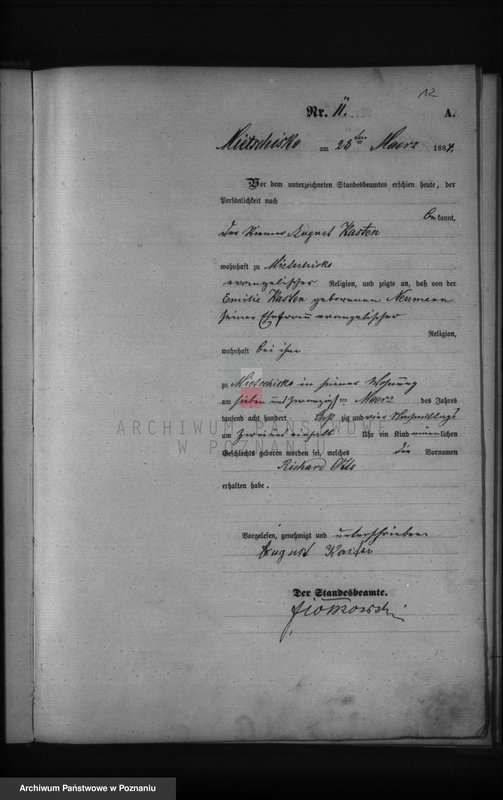 12
Nr. 11.
A.
Mietschisko am 25ten Maerz 1884.
Vor dem unterzeichneten Standesbeamten erschien heute, der
Persönlichkeit nach
bekannt,
der Riemer August Kasten
wohnhaft zu Mietschisko
evangelischer Religion, und zeigte an, daß von der
Emilie Kasten geborenen Neumann
seiner Ehefrau evangelischer
Religion,
wohnhaft bei ihm
zu Mietschisko in seiner Wohnung
am sieben und zwanzigsten Maerz des Jahres
tausend acht hundert achtzig und vier Nachmittags
um zwei und einhalb Uhr ein Kind männlichen
Geschlechts geboren worden sei, welches die Vornamen
Richard Otto
erhalten habe.
Vorgelesen, genehmigt und unterschrieben
August Kasten
Der Standesbeamte.
ARCHIWUM PAŃSTWOWE
W POZNANIU
Archiwum Państwowe w Poznaniu